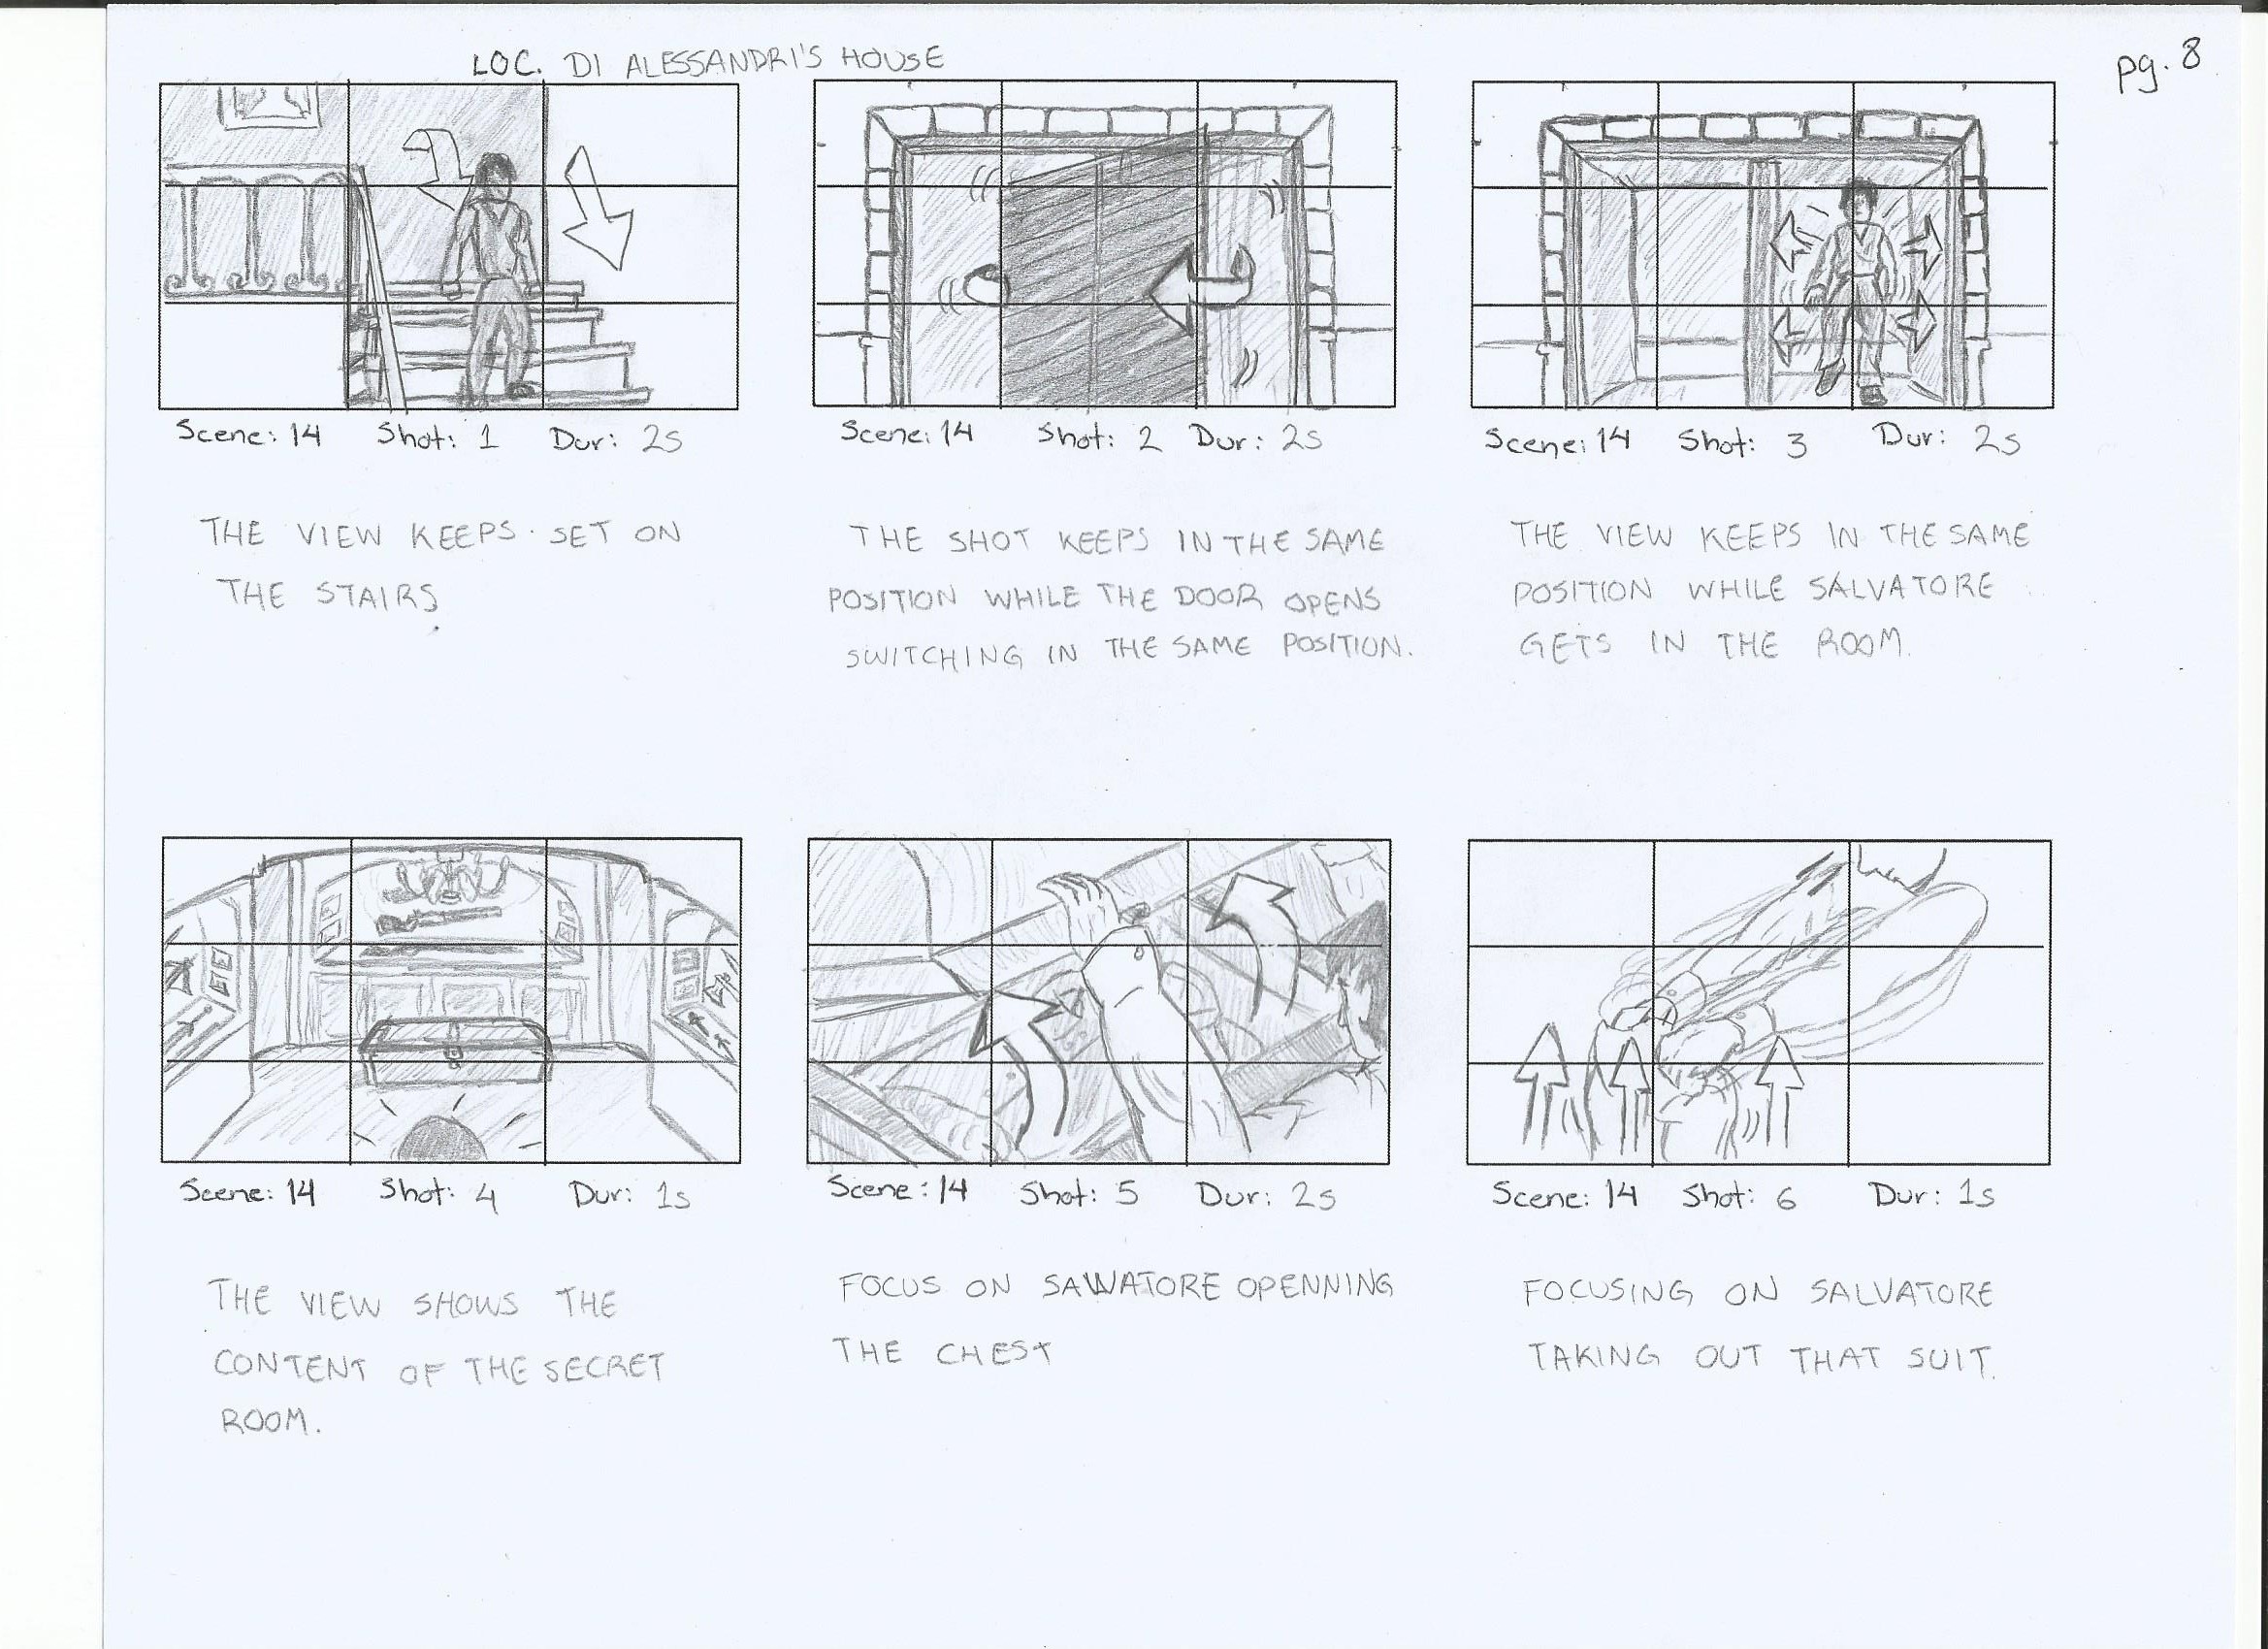 LOC. DI ALESSANDRI'S HOUSE
pg. 8
Scene: 14 Shot: 1 Dur: 2s
THE VIEW KEEPS SET ON
THE STAIRS
Scene: 14 Shot: 2 Dur: 2s
THE SHOT KEEPS IN THE SAME
POSITION WHILE THE DOOR OPENS
SWITCHING IN THE SAME POSITION.
Scene: 14 Shot: 3 Dur: 2s
THE VIEW KEEPS IN THE SAME
POSITION WHILE SALVATORE
GETS IN THE ROOM.
Scene: 14 Shot: 4 Dur: 1s
THE VIEW SHOWS THE
CONTENT OF THE SECRET
ROOM.
Scene: 14 Shot: 5 Dur: 2s
FOCUS ON SALVATORE OPENNING
THE CHEST
Scene: 14 Shot: 6 Dur: 1s
FOCUSING ON SALVATORE
TAKING OUT THAT SUIT.